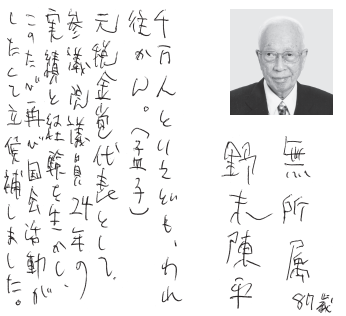 無所属 87歳
野末陳平
千万人といえども、われ
往かん。(孟子)
元税金党代表として、
参議院議員24年の
実績と経験を生かし、
このたび再び国会活動が
したくて立候補しました。